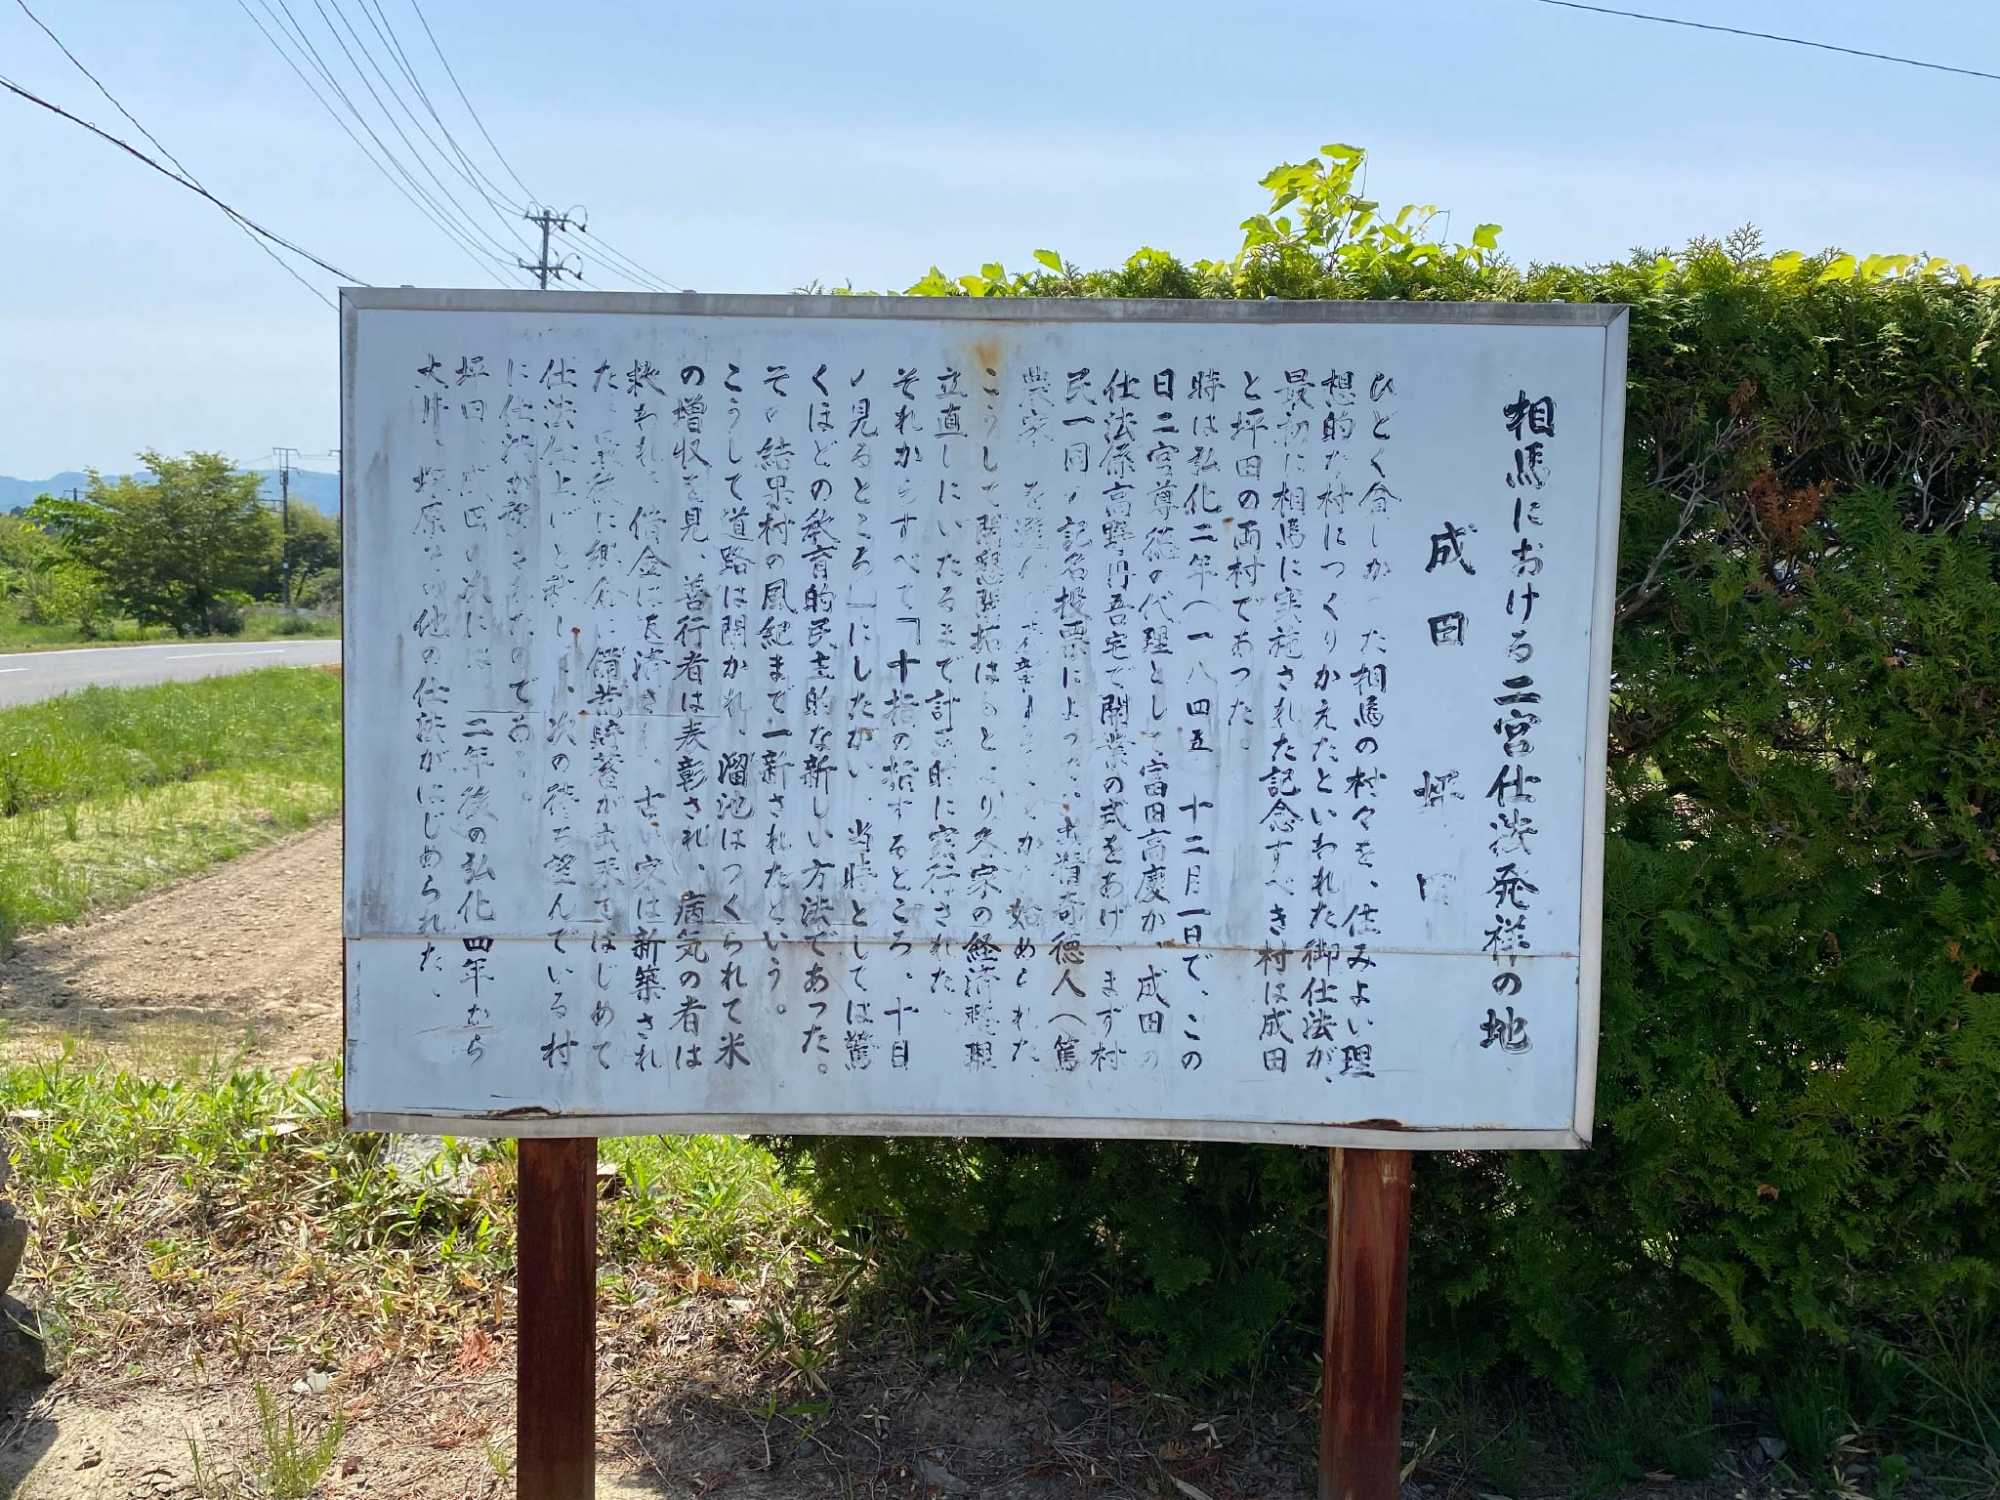 相馬における二宮仕法発祥の地
成田 坪田
ひどく貧しか た相馬の村々を、住みよい理
想的な村につくりかえたといわれた御仕法が、
最初に相馬に実施された記念すべき村は成田
と坪田の両村であった。
時は弘化二年(一八四五 十二月一日で、この
日二宮尊徳の代理として富田高慶が、成田の
仕法係高野丹吾宅で開業の式をあげ、まず村
民一同の記名投票によって 奇徳人へ篤
農家 を選 始められた
こうして開墾開拓はもとより各家の経済整理
立直しにいたるまで計 に実行された
それからすべて「十指の指すところ、十目
ノ見るところ」にしたがい、当時としては驚
くほどの教育的民主的な新しい方法であった。
その結果村の風紀まで一新されたという。
こうして道路は開かれ、溜池はつくられて米
の増収を見、善行者は表彰され、病気の者は
救われ、借金は返済され、古い家は新築され
た 最後に 備荒貯蓄が出来てはじめて
仕法仕上げと称し 、次の待ち望んでいる村
に仕法が移されたのである。
坪田、成田の次には 二年後の弘化四年から
大井、塚原 他の仕法がはじめられた、